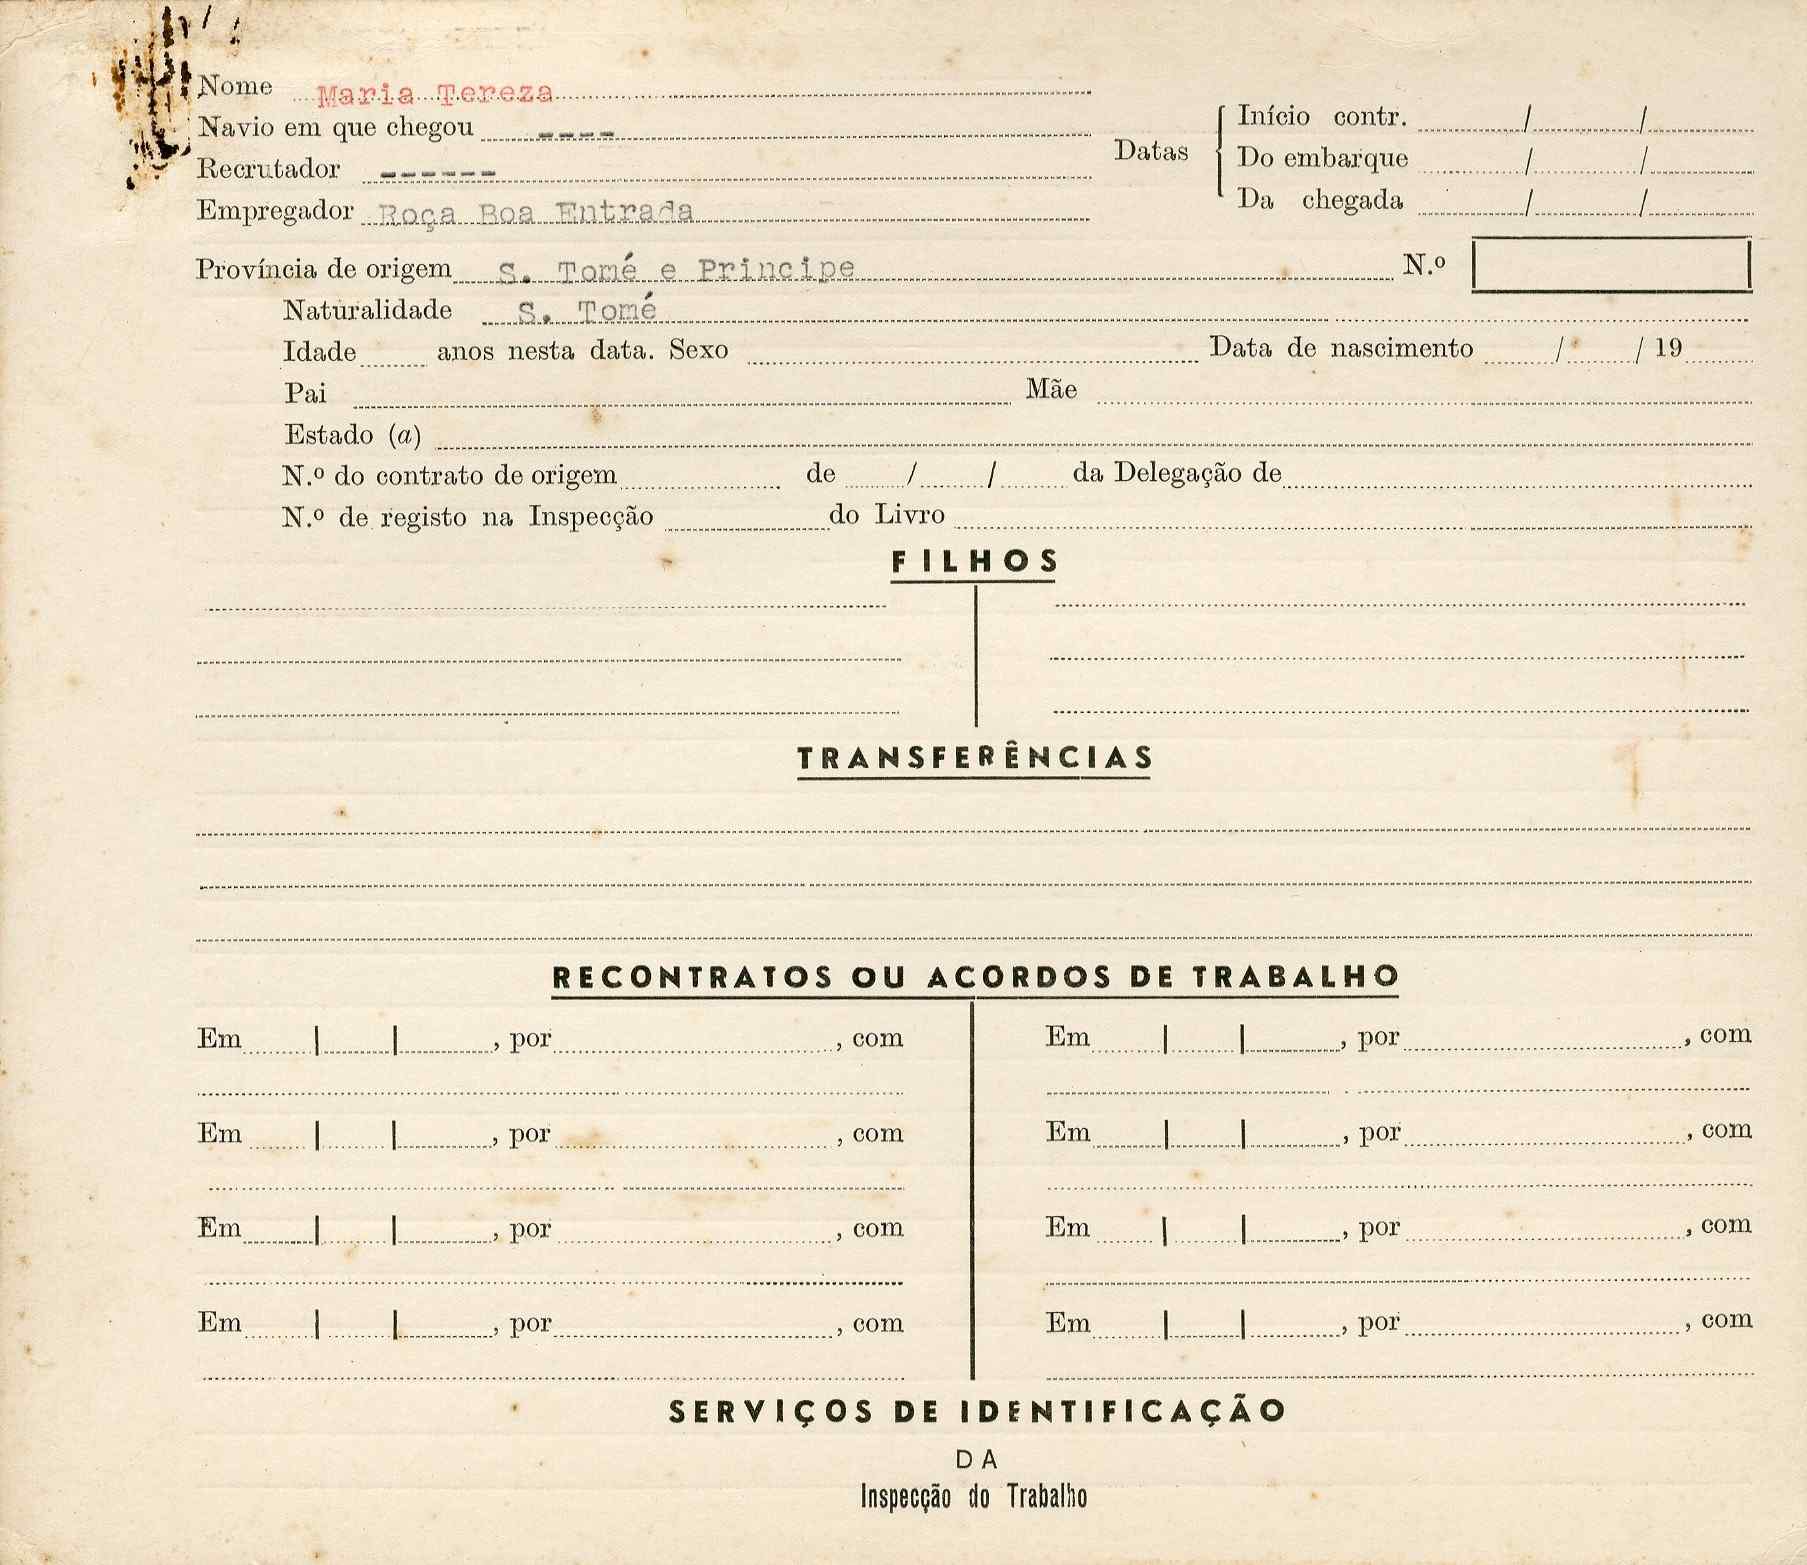 Nome Maria Tereza
Navio em que chegou ----
Recrutador ------
Empregador Roça Boa Entrada
Datas
Início contr. / /
Do embarque / /
Da chegada / /
Província de origem S. Tomé e Principe N.º
Naturalidade S. Tomé
Idade anos nesta data. Sexo Data de nascimento / / 19
Pai Mãe
Estado (a)
N.º do contrato de origem de / / da Delegação de
N.º de registo na Inspecção do Livro
FILHOS
TRANSFERÊNCIAS
RECONTRATOS OU ACORDOS DE TRABALHO
Em | | , por , com Em | | , por , com
Em | | , por , com Em | | , por , com
Em | | , por , com Em | | , por , com
Em | | , por , com Em | | , por , com
SERVIÇOS DE IDENTIFICAÇÃO
DA
Inspecção do Trabalho